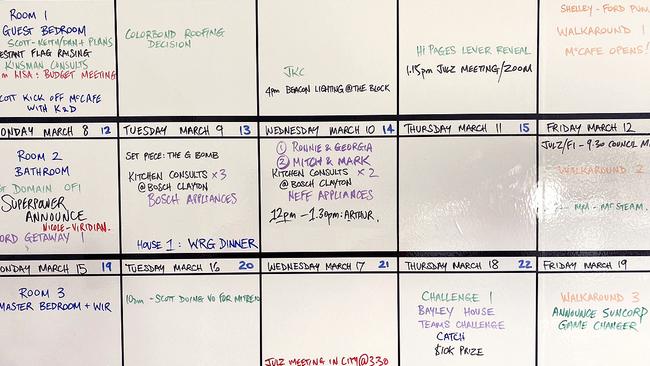 ROOM 1
GUEST BEDROOM
SCOTT-KEITH/DAN+ PLANS
FLAG RAISING
KINSMAN CONSULTS
LISA: BUDGET MEETING
KICK OFF McCAFE
WITH K&D
COLORBOND ROOFING
DECISION
JKC
4pm BEACON LIGHTING @ THE BLOCK
HI PAGES LEVER REVEAL
1.15pm JULZ MEETING/ZOOM
SHELLEY - FORD
WALKAROUND 1
McCAFE OPENS!
MARCH 8 12
TUESDAY MARCH 9 13
WEDNESDAY MARCH 10 14
THURSDAY MARCH 11 15
FRIDAY MARCH 12
ROOM 2
BATHROOM
DOMAIN OF1
SUPERPOWER
ANNOUNCE
NICOLE-VIRIDIAN.
GETAWAY 1
SET PIECE: THE G BOMB
KITCHEN CONSULTS x3
@ BOSCH CLAYTON
BOSCH APPLIANCES
HOUSE 1: WRG DINNER
1 RONNIE & GEORGIA
2 MITCH & MARK
KITCHEN CONSULTS x2
@ BOSCH CLAYTON
NEFF APPLIANCES
12pm - 1.30pm: ARTHUR.
JULZ/FI - 9.30 COUNCIL
WALKAROUND 2
MM - MCSTEAM.
MARCH 15 19
TUESDAY MARCH 16 20
WEDNESDAY MARCH 17 21
THURSDAY MARCH 18 22
FRIDAY MARCH 19
ROOM 3
MASTER BEDROOM + WIR
10am - SCOTT DOING VO FOR MITRE10
JULZ MEETING IN CITY @ 3.30
CHALLENGE 1
BAYLEY HOUSE
TEAMS CHALLENGE
CATCH
$10K PRIZE
WALKAROUND 3
ANNOUNCE SUNCORP
GAME CHANGER!